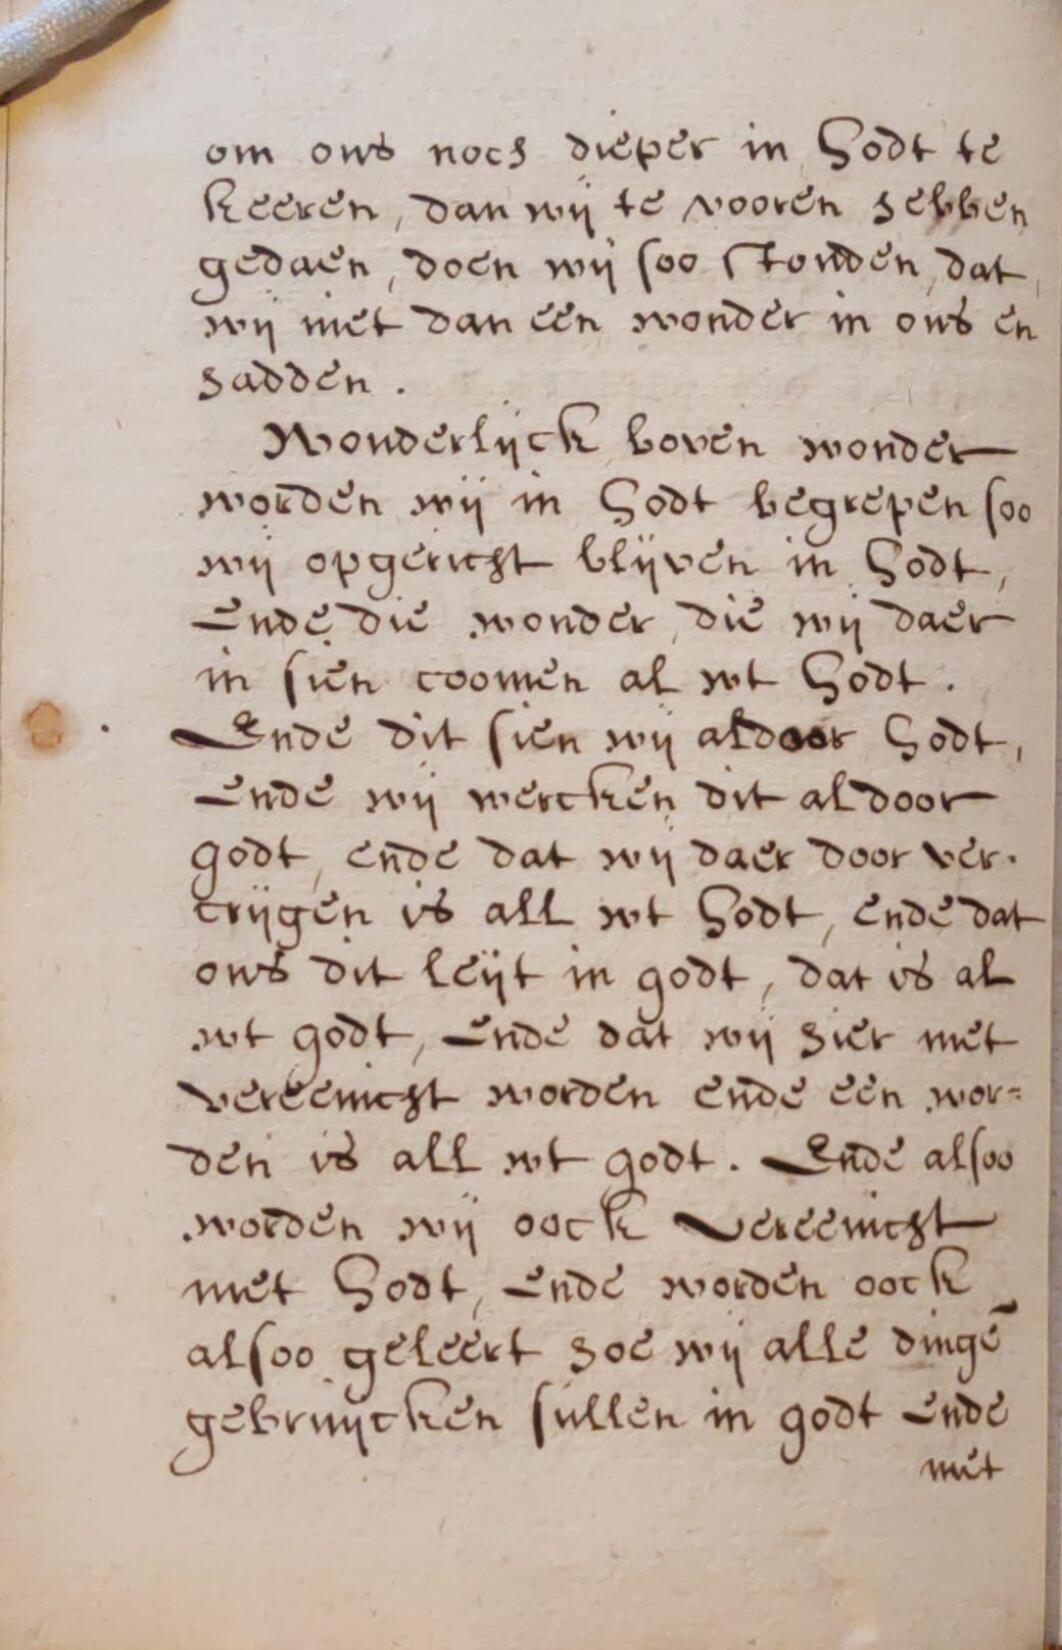 om ons noch dieper in Godt te
keeren, dan wij te vooren hebben
gedaen, doen wij soo stonden, dat
wij niet dan een wonder in ons en
hadden.
Wonderlijck boven wonder
worden wij in Godt begrepen soo
wij opgericht blijven in Godt,
Ende die wonder, die wij daer
in sien coomen al wt Godt.
Ende dit sien wij al door Godt,
Ende wij wercken dit al door
godt, ende dat wij daer door ver-
crijgen is all wt Godt, ende dat
ons dit leijt in godt, dat is al
wt godt, Ende dat wij hier met
vereenicht worden ende een wor=
den is all wt godt. Ende alsoo
worden wij oock Vereenicht
met Godt, Ende worden oock
alsoo geleert hoe wij alle dingē
gebruijcken sullen in godt Ende
met